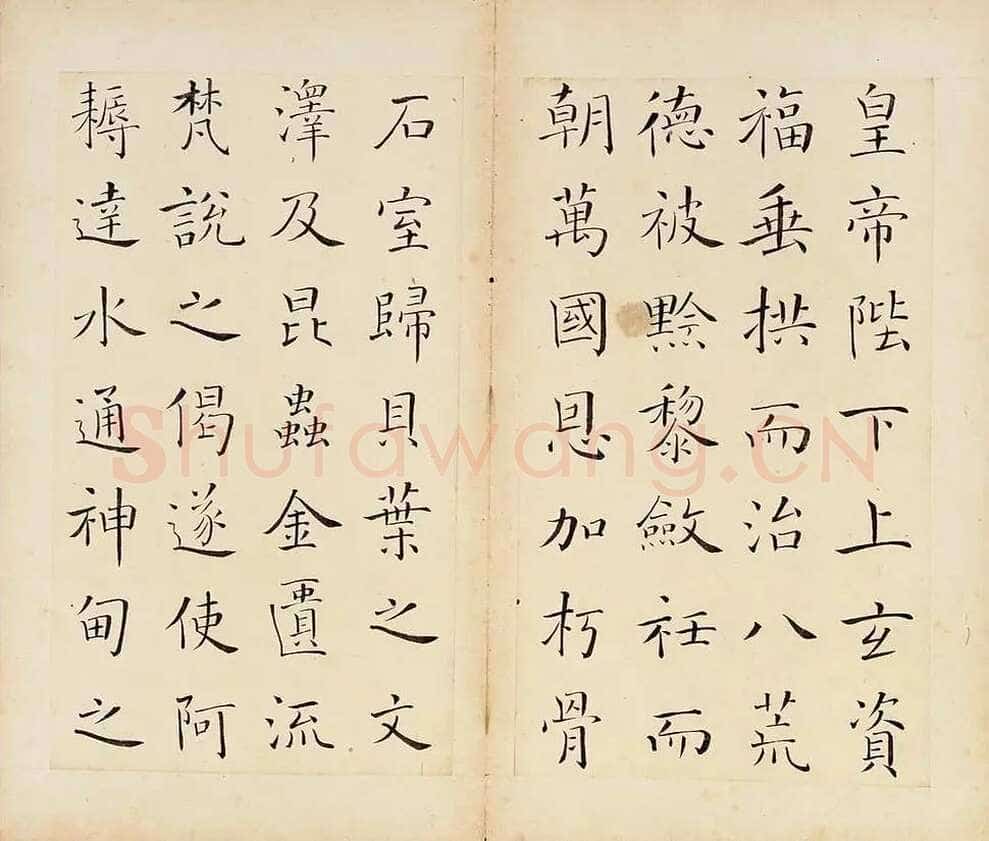 皇帝陛下上玄資
福垂拱而治八荒
德被黔黎斂衽而
朝萬國恩加朽骨
石室歸貝葉之文
澤及昆蟲金匱流
梵說之偈遂使阿
耨達水通神甸之
Shufawang.CN